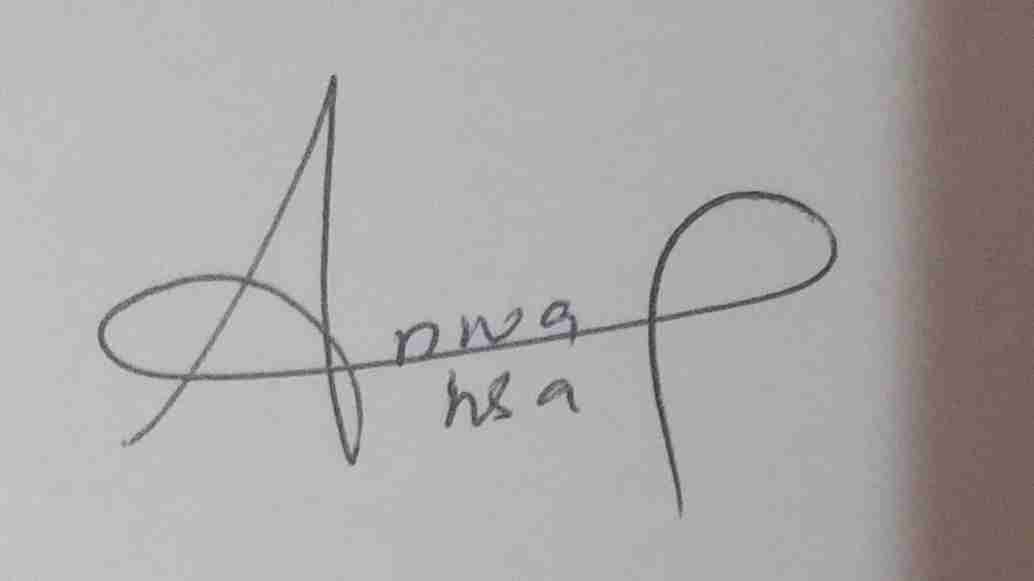 Anwar
nsa